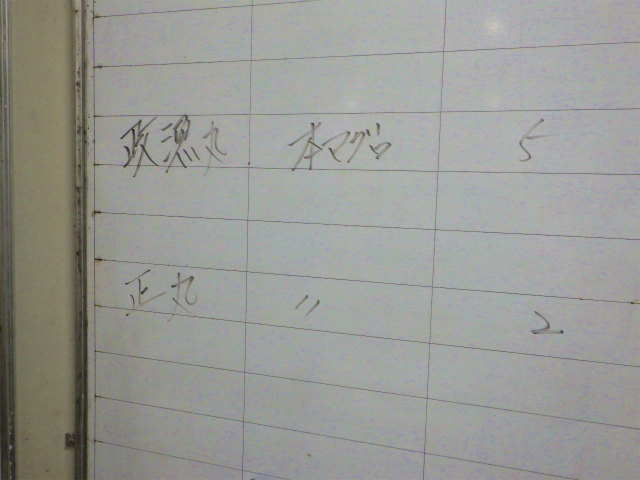 政漁丸 本マグロ 5
正丸 〃 2